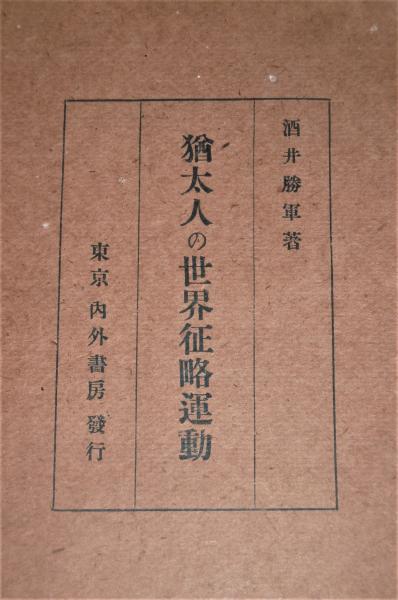 酒井勝軍著
猶太人の世界征略運動
東京 內外書房 發行